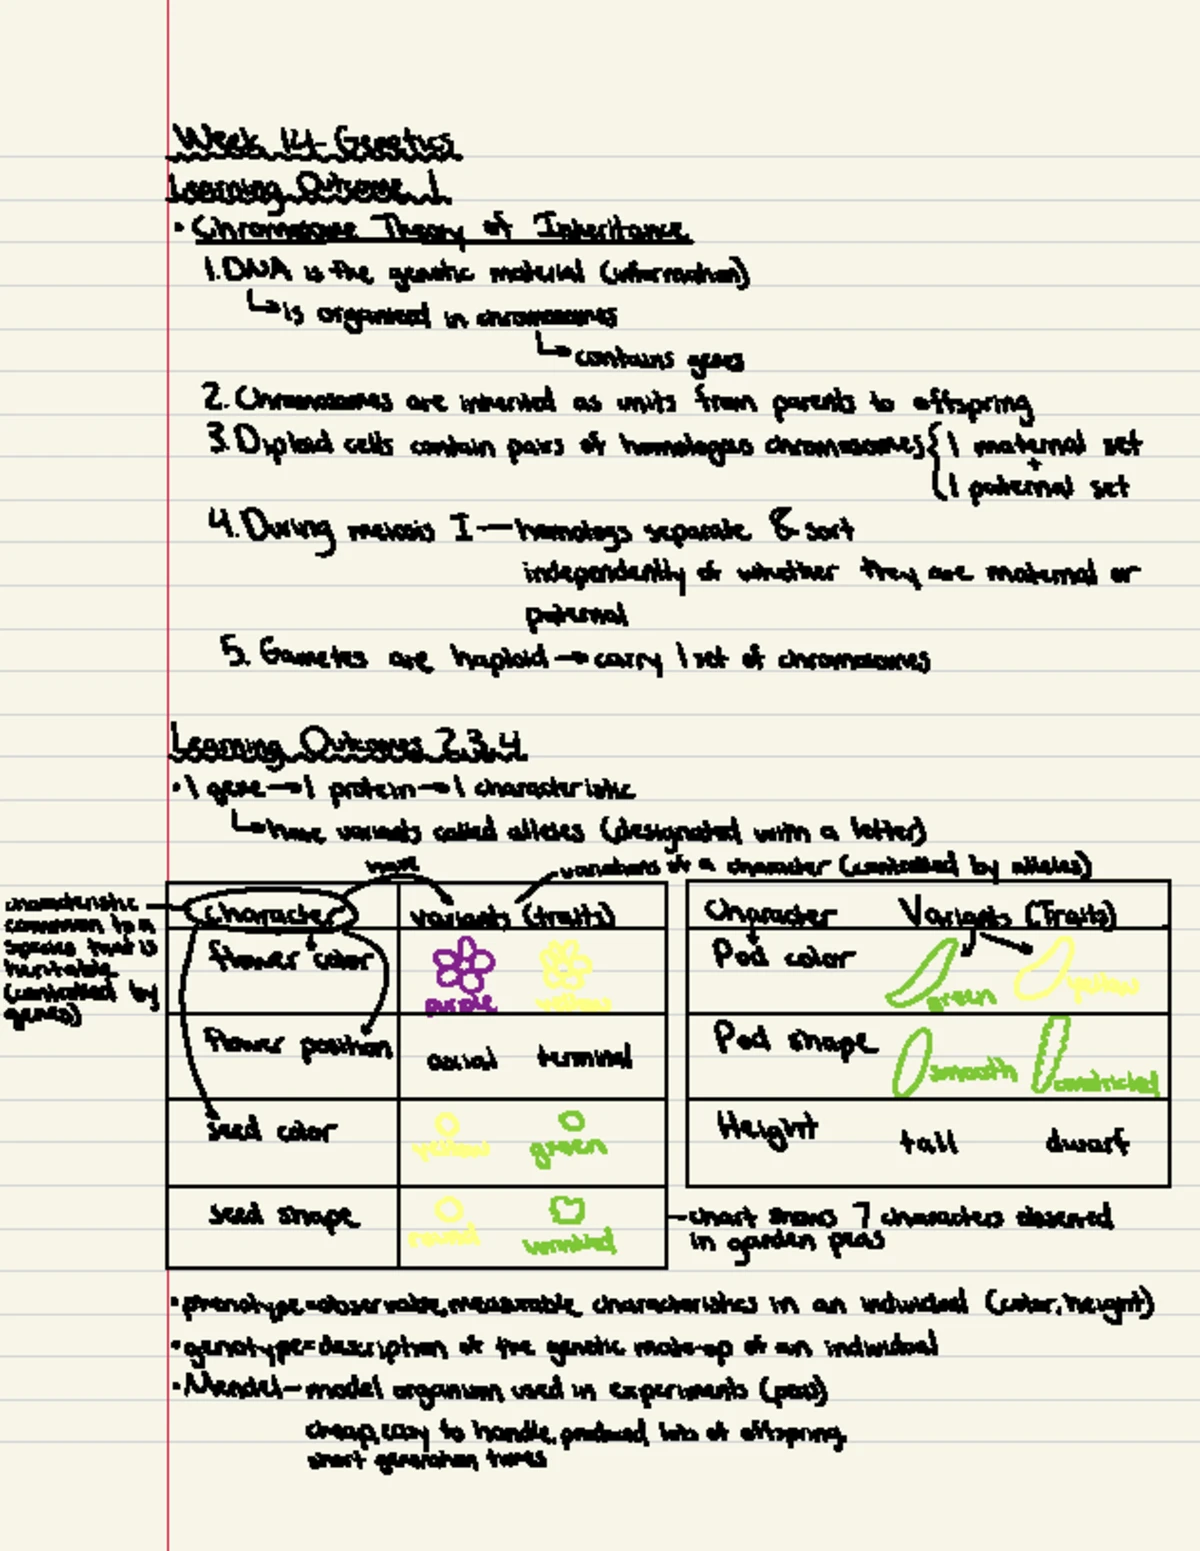 Week 14- Genetics
Learning Outcome 1
• Chromosome Theory of Inheritance
1. DNA is the genetic material (information)
↳ is organized in chromosomes
↳ contains genes
2. Chromosomes are inherited as units from parents to offspring
3. Diploid cells contain pairs of homologous chromosomes { 1 maternal set
+
1 paternal set
4. During meiosis I — homologs separate & sort
independently of whether they are maternal or
paternal
5. Gametes are haploid → carry 1 set of chromosomes
Learning Outcomes 2,3,4
• 1 gene → 1 protein → 1 characteristic
↳ have variants called alleles (designated with a letter)
have
variations of a character (controlled by alleles)
characteristic
common to a
species that is
heritable
(controlled by
genes)
character variants (traits)
flower color purple yellow
flower position axial terminal
seed color yellow green
seed shape round wrinkled
Character Variants (Traits)
Pod color green yellow
Pod shape smooth constricted
Height tall dwarf
chart shows 7 characters observed
in garden peas
• phenotype=observable, measurable characteristics in an individual (color, height)
• genotype=description of the genetic make-up of an individual
• Mendel – model organism used in experiments (peas)
cheap, easy to handle, produced lots of offspring,
short generation times